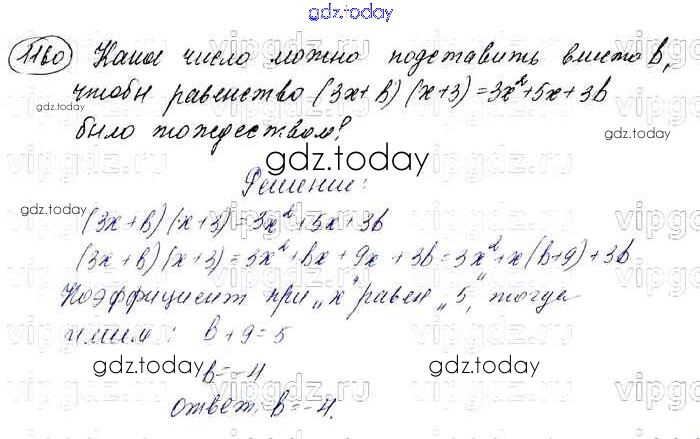 gdz.today
1160 Какое число можно подставить вместо b,
чтобы равенство (3x+b)(x+3)=3x²+5x+3b
было тождеством?
gdz.today
Решение:
gdz.today
(3x+b)(x+3)=3x²+5x+3b
(3x+b)(x+3)=3x²+bx+9x+3b=3x²+x(b+9)+3b
Коэффициент при „x" равен „5", тогда
имеем: b+9=5
gdz.today
gdz.today
b=-4
ответ: b=-4.